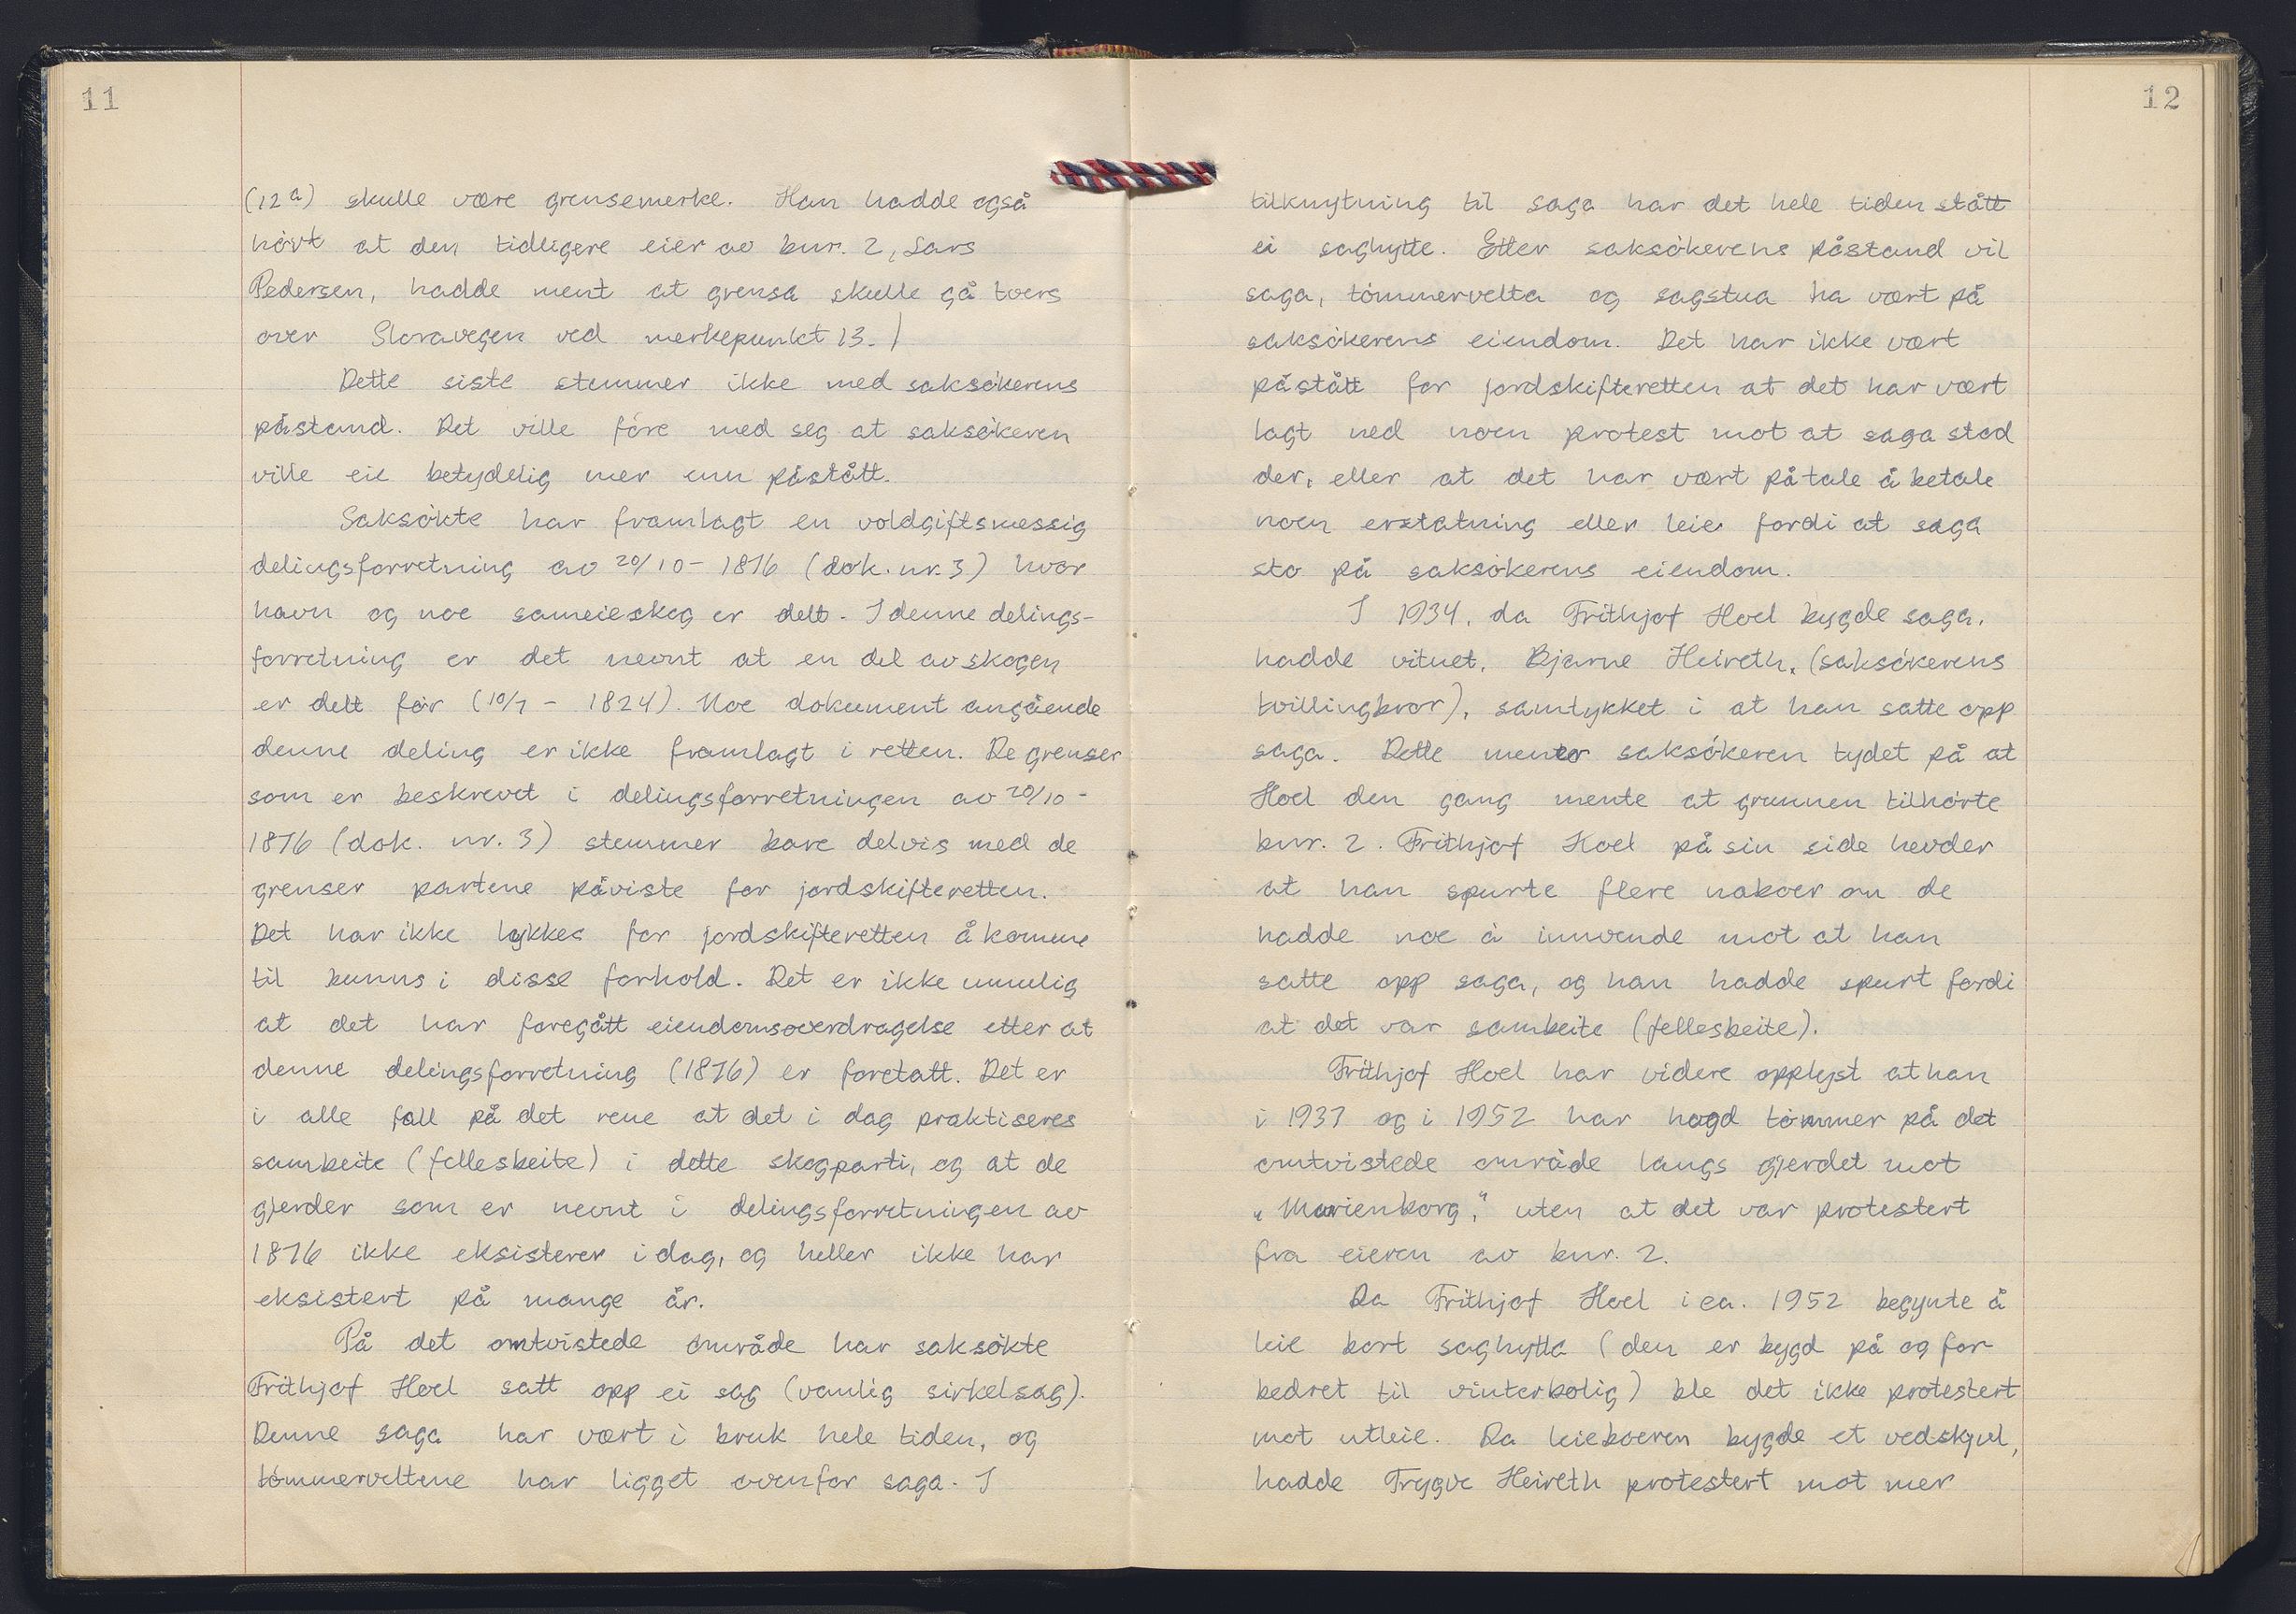 11
(12a) skulle være grensemerke. Han hadde også
hört at den tidligere eier av bnr. 2, Lars
Pedersen, hadde ment at grensa skulle gå tvers
over Storavegen ved merkepunkt 13. /
Dette siste stemmer ikke med saksökerens
påstand. Det ville före med seg at saksökeren
ville eie betydelig mer enn påstått.
Saksökte har framlagt en voldgiftsmessig
delingsforretning av 20/10 - 1876 (dok. nr. 3) hvor
havn og noe sameieskog er delt. I denne delings-
forretning er det nevnt at en del av skogen
er delt för (10/7 - 1824). Noe dokument angående
denne deling er ikke framlagt i retten. De grenser
som er beskrevet i delingsforretningen av 20/10 -
1876 (dok. nr. 3) stemmer bare delvis med de
grenser partene påviste for jordskifteretten.
Det har ikke lykkes for jordskifteretten å komme
til bunns i disse forhold. Det er ikke umulig
at det har foregått eiendomsoverdragelse etter at
denne delingsforretning (1876) er foretatt. Det er
i alle fall på det rene at det i dag praktiseres
sambeite (fellesbeite) i dette skogparti, og at de
gjerder som er nevnt i delingsforretningen av
1876 ikke eksisterer i dag, og heller ikke har
eksistert på mange år.
På det omtvistede område har saksökte
Frithjof Hoel satt opp ei sag (vanlig sirkelsag).
Denne saga har vært i bruk hele tiden, og
tömmerveltene har ligget ovenfor saga. I
12
tilknytning til saga har det hele tiden stått
ei saghytte. Etter saksökerens påstand vil
saga, tömmervelta og sagstua ha vært på
saksökerens eiendom. Det har ikke vært
påstått for jordskifteretten at det har vært
lagt ned noen protest mot at saga stod
der, eller at det har vært på tale å betale
noen erstatning eller leie fordi at saga
sto på saksökerens eiendom.
I 1934, da Frithjof Hoel bygde saga,
hadde vitnet, Bjarne Heireth, (saksökerens
tvillingbror), samtykket i at han satte opp
saga. Dette mener saksökeren tydet på at
Hoel den gang mente at grunnen tilhörte
bnr. 2. Frithjof Hoel på sin side hevder
at han spurte flere naboer om de
hadde noe å innvende mot at han
satte opp saga, og han hadde spurt fordi
at det var sambeite (fellesbeite).
Frithjof Hoel har videre opplyst at han
i 1937 og i 1952 har hogd tömmer på det
omtvistede område langs gjerdet mot
„Marienborg," uten at det var protestert
fra eieren av bnr. 2.
Da Frithjof Hoel i ca. 1952 begynte å
leie bort saghytta (den er bygd på og for-
bedret til vinterbolig) ble det ikke protestert
mot utleie. Da leieboeren bygde et vedskjul,
hadde Trygve Heireth protestert mot mer